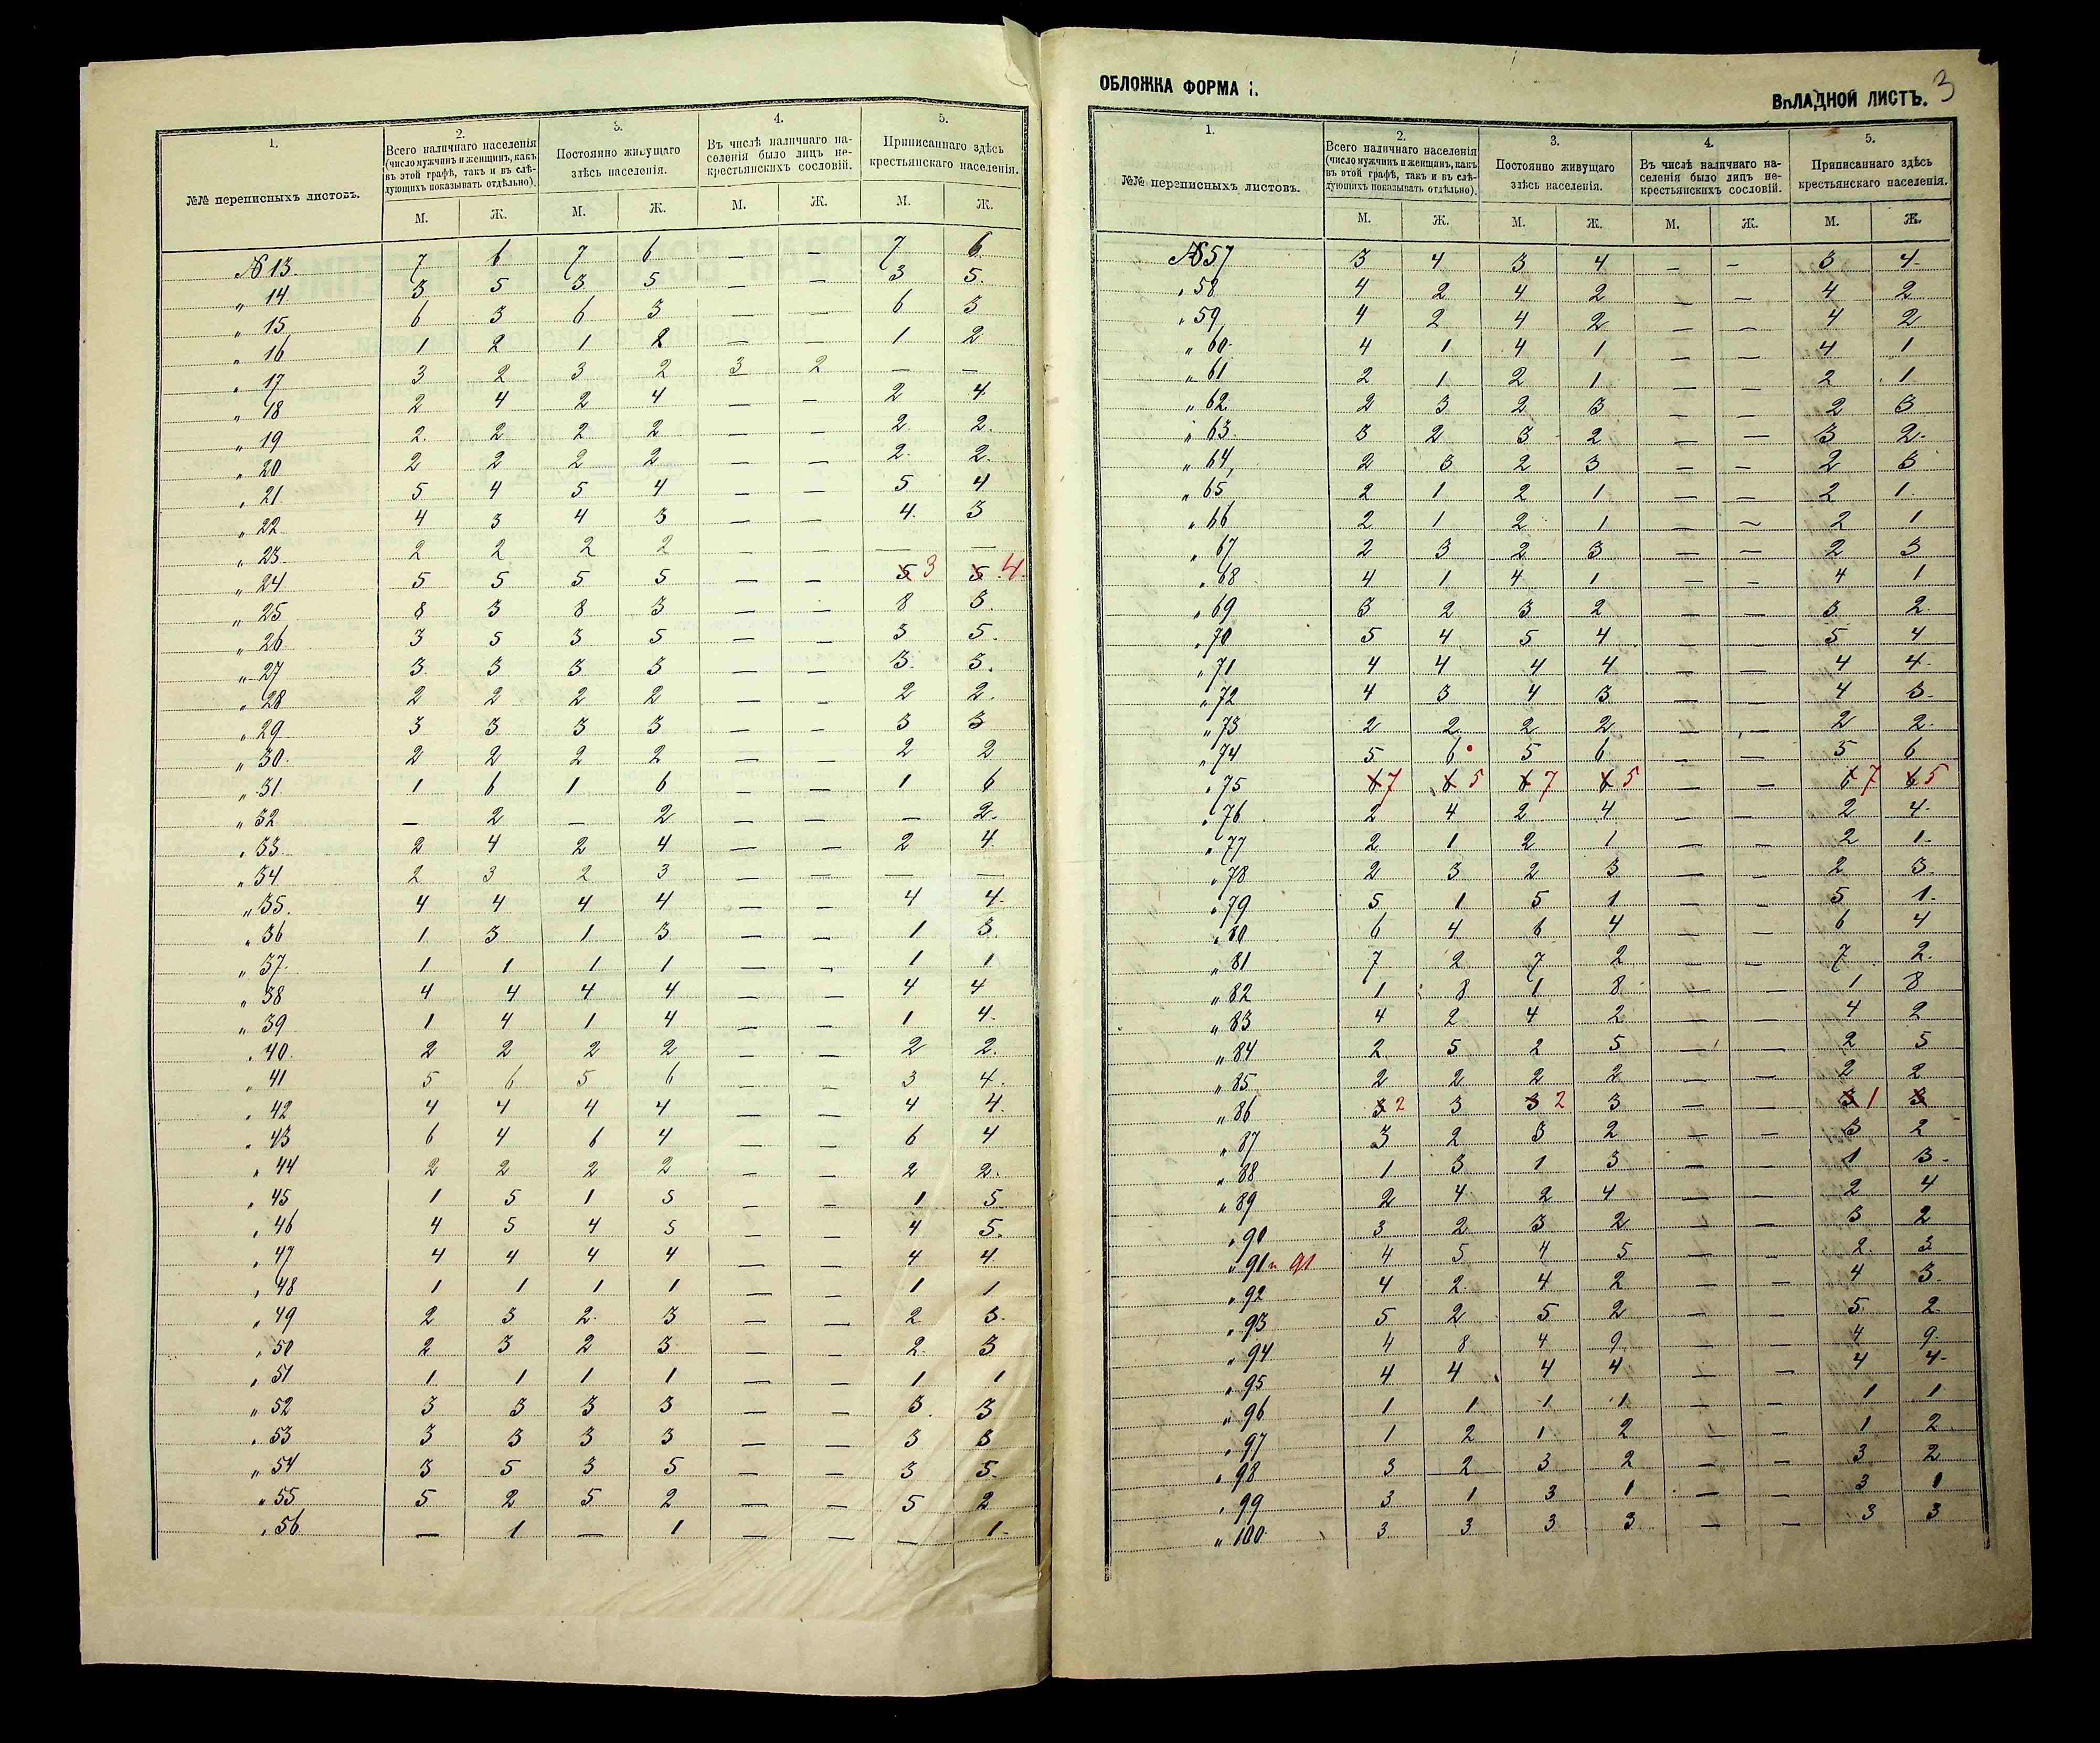 1.
2.
3.
4.
5.
№№ переписныхъ листовъ.
Всего наличнаго населенія
(число мужчинъ и женщинъ, какъ
въ этой графѣ, такъ и въ слѣ-
дующихъ показывать отдѣльно).
Постоянно живущаго
здѣсь населенія.
Въ числѣ наличнаго на-
селенія было лицъ не-
крестьянскихъ сословій.
Приписаннаго здѣсь
крестьянскаго населенія.
М. Ж. М. Ж. М. Ж. М. Ж.
№ 13. 7 6 7 6 — — 7 6.
„ 14 3 5 3 5 — — 3 5.
„ 15 6 3 6 3 — — 6 3
„ 16 1 2 1 2 — — 1 2
„ 17 3 2 3 2 3 2 — —
„ 18 2 4 2 4 — — 2 4
„ 19 2. 2 2 2 — — 2 2.
„ 20 2 2 2 2 — — 2 2.
„ 21 5 4 5 4 — — 5 4
„ 22 4 3 4 3 — — 4. 3
„ 23 2 2 2 2 — — — —
„ 24 5 5 5 5 — — 5 3 5 4.
„ 25 8 3 8 3 — — 8 3.
„ 26 3 5 3 5 — — 3 5.
„ 27 3 3 3 3 — — 3. 3.
„ 28 2 2 2 2 — — 2 2.
„ 29 3 3 3 3 — — 3 3
„ 30. 2 2 2 2 — — 2 2
„ 31. 1 6 1 6 — — 1 6
„ 32 — 2 — 2 — — — 2.
„ 33 2 4 2 4 — — 2 4
„ 34 2 3 2 3 — — — —
„ 35. 4 4 4 4 — — 4 4.
„ 36 1 3 1 3 — — 1 3.
„ 37. 1 1 1 1 — — 1 1
„ 38 4 4 4 4 — — 4 4
„ 39 1 4 1 4 — — 1 4.
„ 40. 2 2 2 2 — — 2 2.
„ 41 5 6 5 6 — — 3 4.
„ 42 4 4 4 4 — — 4 4.
„ 43 6 4 6 4 — — 6 4
„ 44 2 2 2 2 — — 2 2.
„ 45 1 5 1 5 — — 1 5.
„ 46 4 5 4 5 — — 4 5.
„ 47 4 4 4 4 — — 4 4
„ 48 1 1 1 1 — — 1 1
„ 49 2 3 2. 3 — — 2 3.
„ 50 2 3 2 3 — — 2. 3
„ 51 1 1 1 1 — — 1 1
„ 52 3 3 3 3 — — 3. 3
„ 53 3 3 3 3 — — 3 3
„ 54 3 5 3 5 — — 3 5.
„ 55 5 2 5 2 — — 5 2
„ 56 — 1 — 1 — — — 1.
ОБЛОЖКА ФОРМА 1.
ВКЛАДНОЙ ЛИСТЪ. 3
1.
2.
3.
4.
5.
№№ переписныхъ листовъ.
Всего наличнаго населенія
(число мужчинъ и женщинъ, какъ
въ этой графѣ, такъ и въ слѣ-
дующихъ показывать отдѣльно).
Постоянно живущаго
здѣсь населенія.
Въ числѣ наличнаго на-
селенія было лицъ не-
крестьянскихъ сословій.
Приписаннаго здѣсь
крестьянскаго населенія.
М. Ж. М. Ж. М. Ж. М. Ж.
№ 57 3 4 3 4 — — 3 4
„ 58 4 2 4 2 — — 4 2
„ 59 4 2 4 2 — — 4 2
„ 60 4 1 4 1 — — 4 1
„ 61 2 1 2 1 — — 2 1
„ 62 2 3 2 3 — — 2 3
„ 63 3 2 3 2 — — 3 2
„ 64 2 3 2 3 — — 2 3
„ 65 2 1 2 1 — — 2 1.
„ 66 2 1 2 1 — — 2 1
„ 67 2 3 2 3 — — 2 3
„ 68 4 1 4 1 — — 4 1
„ 69 3 2 3 2 — — 3 2
„ 70 5 4 5 4 — — 5 4
„ 71 4 4 4 4 — — 4 4
„ 72 4 3 4 3 — — 4 3
„ 73 2 2 2 2 — — 2 2
„ 74 5 6 5 6 — — 5 6
„ 75 6 7 6 5 6 7 6 5 — — 6 7 6 5
„ 76 2 4 2 4 — — 2 4
„ 77 2 1 2 1 — — 2 1
„ 78 2 3 2 3 — — 2 3.
„ 79 5 1 5 1 — — 5 1
„ 80 6 4 6 4 — — 6 4
„ 81 7 2 7 2 — — 7 2.
„ 82 1 8 1 8 — — 1 8
„ 83 4 2 4 2 — — 4 2
„ 84 2 5 2 5 — — 2 5
„ 85 2 2 2 2 — — 2 2
„ 86 3 2 3 3 2 3 — — 3 1 3
„ 87 3 2 3 2 — — 3 2
„ 88 1 3 1 3 — — 1 3
„ 89 2 4 2 4 — — 2 4
„ 90 3 2 3 2 — — 3 2
„ 91 „ 91 4 5 4 5 — — 2. 3
„ 92 4 2 4 2 — — 4 3.
„ 93 5 2 5 2 — — 5 2
„ 94 4 8 4 9 — — 4 9
„ 95 4 4 4 4 — — 4 4
„ 96 1 1 1 1 — — 1 1
„ 97 1 2 1 2 — — 1 2
„ 98 3 2 3 2 — — 3 2
„ 99 3 1 3 1 — — 3 1
„ 100 3 3 3 3 — — 3 3